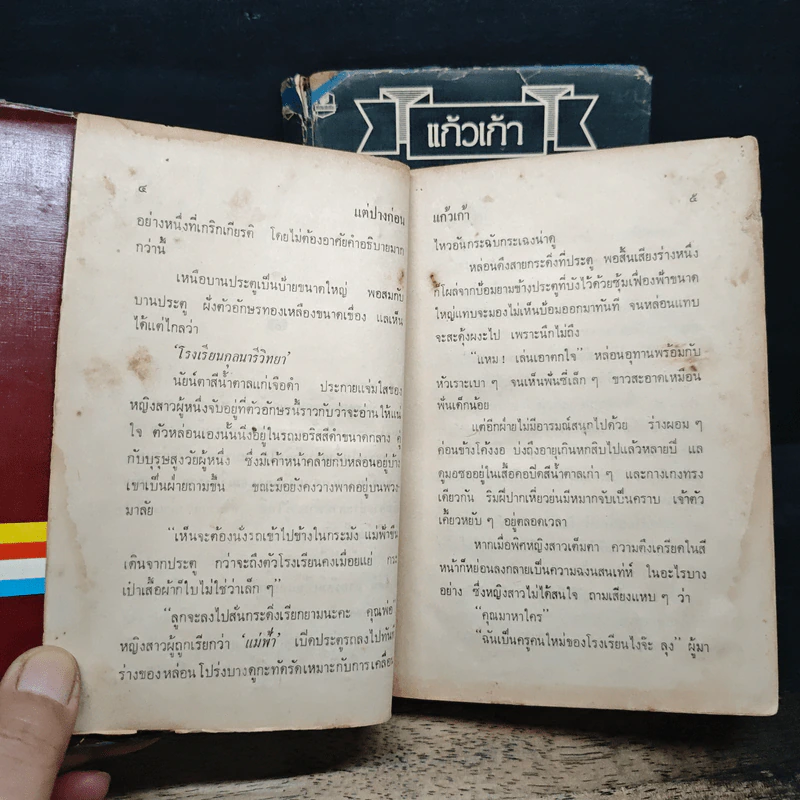 แก้วเก้า
๔
แต่ปางก่อน
อย่างหนึ่งที่เกริกเกียรติ โดยไม่ต้องอาศัยคำอธิบายมาก
กว่านี้
เหนือบานประตูเป็นป้ายขนาดใหญ่ พอสมกับ
บานประตู ฝังตัวอักษรทองเหลืองขนาดเขื่อง แลเห็น
ได้แต่ไกลว่า
'โรงเรียนกุลนารีวิทยา'
นัยน์ตาสีน้ำตาลแก่เจือดำ ประกายแจ่มใสของ
หญิงสาวผู้หนึ่งจับอยู่ที่ตัวอักษรนี้ราวกับว่าจะอ่านให้แน่
ใจ ตัวหล่อนเองนั้นนั่งอยู่ในรถมอริสสีดำขนาดกลาง คู่
กับบุรุษสูงวัยผู้หนึ่ง ซึ่งมีเค้าหน้าคล้ายกับหล่อนอยู่บ้าง
เขาเป็นฝ่ายถามขึ้น ขณะมือยังคงวางพาดอยู่บนพวง
มาลัย
"เห็นจะต้องนั่งรถเข้าไปข้างในกระมัง แม่ฟ้าขืน
เดินจากประตู กว่าจะถึงตัวโรงเรียนคงเมื่อยแย่ กระ
เป๋าเสื้อผ้าก็ใบไม่ใช่ว่าเล็ก ๆ"
"ลูกจะลงไปสั่นกระดิ่งเรียกยามนะคะ คุณพ่อ"
หญิงสาวผู้ถูกเรียกว่า 'แม่ฟ้า' เปิดประตูรถลงไปทันที
ร่างของหล่อน โปร่งบางดูกะทัดรัดเหมาะกับการเคลื่อน
แก้วเก้า
๕
ไหวอันกระฉับกระเฉงน่าดู
หล่อนดึงสายกระดิ่งที่ประตู พอสิ้นเสียงร่างหนึ่ง
ก็โผล่จากป้อมยามข้างประตูที่บังไว้ด้วยซุ้มเฟื่องฟ้าขนาด
ใหญ่แทบจะมองไม่เห็นป้อมออกมาทันที จนหล่อนแทบ
จะสะดุ้งผงะไป เพราะนึกไม่ถึง
"แหม! เล่นเอาตกใจ" หล่อนอุทานพร้อมกับ
หัวเราะเบา ๆ จนเห็นฟันซี่เล็ก ๆ ขาวสะอาดเหมือน
ฟันเด็กน้อย
แต่อีกฝ่ายไม่มีอารมณ์สนุกไปด้วย ร่างผอม ๆ
ค่อนข้างโค้งงอ บ่งถึงอายุเกินหกสิบไปแล้วหลายปี แล
ดูมอซออยู่ในเสื้อคอปิดสีน้ำตาลเก่า ๆ และกางเกงทรง
เดียวกัน ริมฝีปากเหี่ยวย่นมีหมากจับเป็นคราบ เจ้าตัว
เคี้ยวหยับ ๆ อยู่ตลอดเวลา
หากเมื่อพิศหญิงสาวเต็มตา ความตึงเครียดในสี
หน้าก็หย่อนลงกลายเป็นความฉงนสนเท่ห์ ในอะไรบาง
อย่าง ซึ่งหญิงสาวไม่ได้สนใจ ถามเสียงแหบ ๆ ว่า
"คุณมาหาใคร"
"ฉันเป็นครูคนใหม่ของโรงเรียนไงจ๊ะ ลุง" ผู้มา